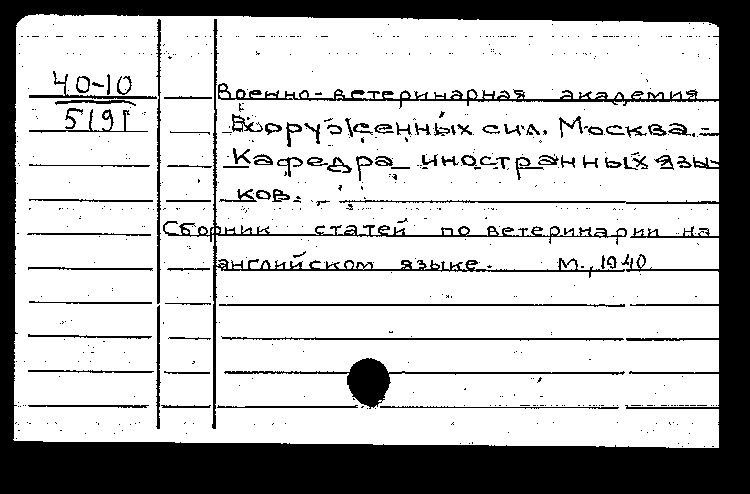 40-10
5191
Военно-ветеринарная академия
Вооруженных сил. Москва.-
Кафедра иностранных язы-
ков.
Сборник статей по ветеринарии на
английском языке. М., 1940